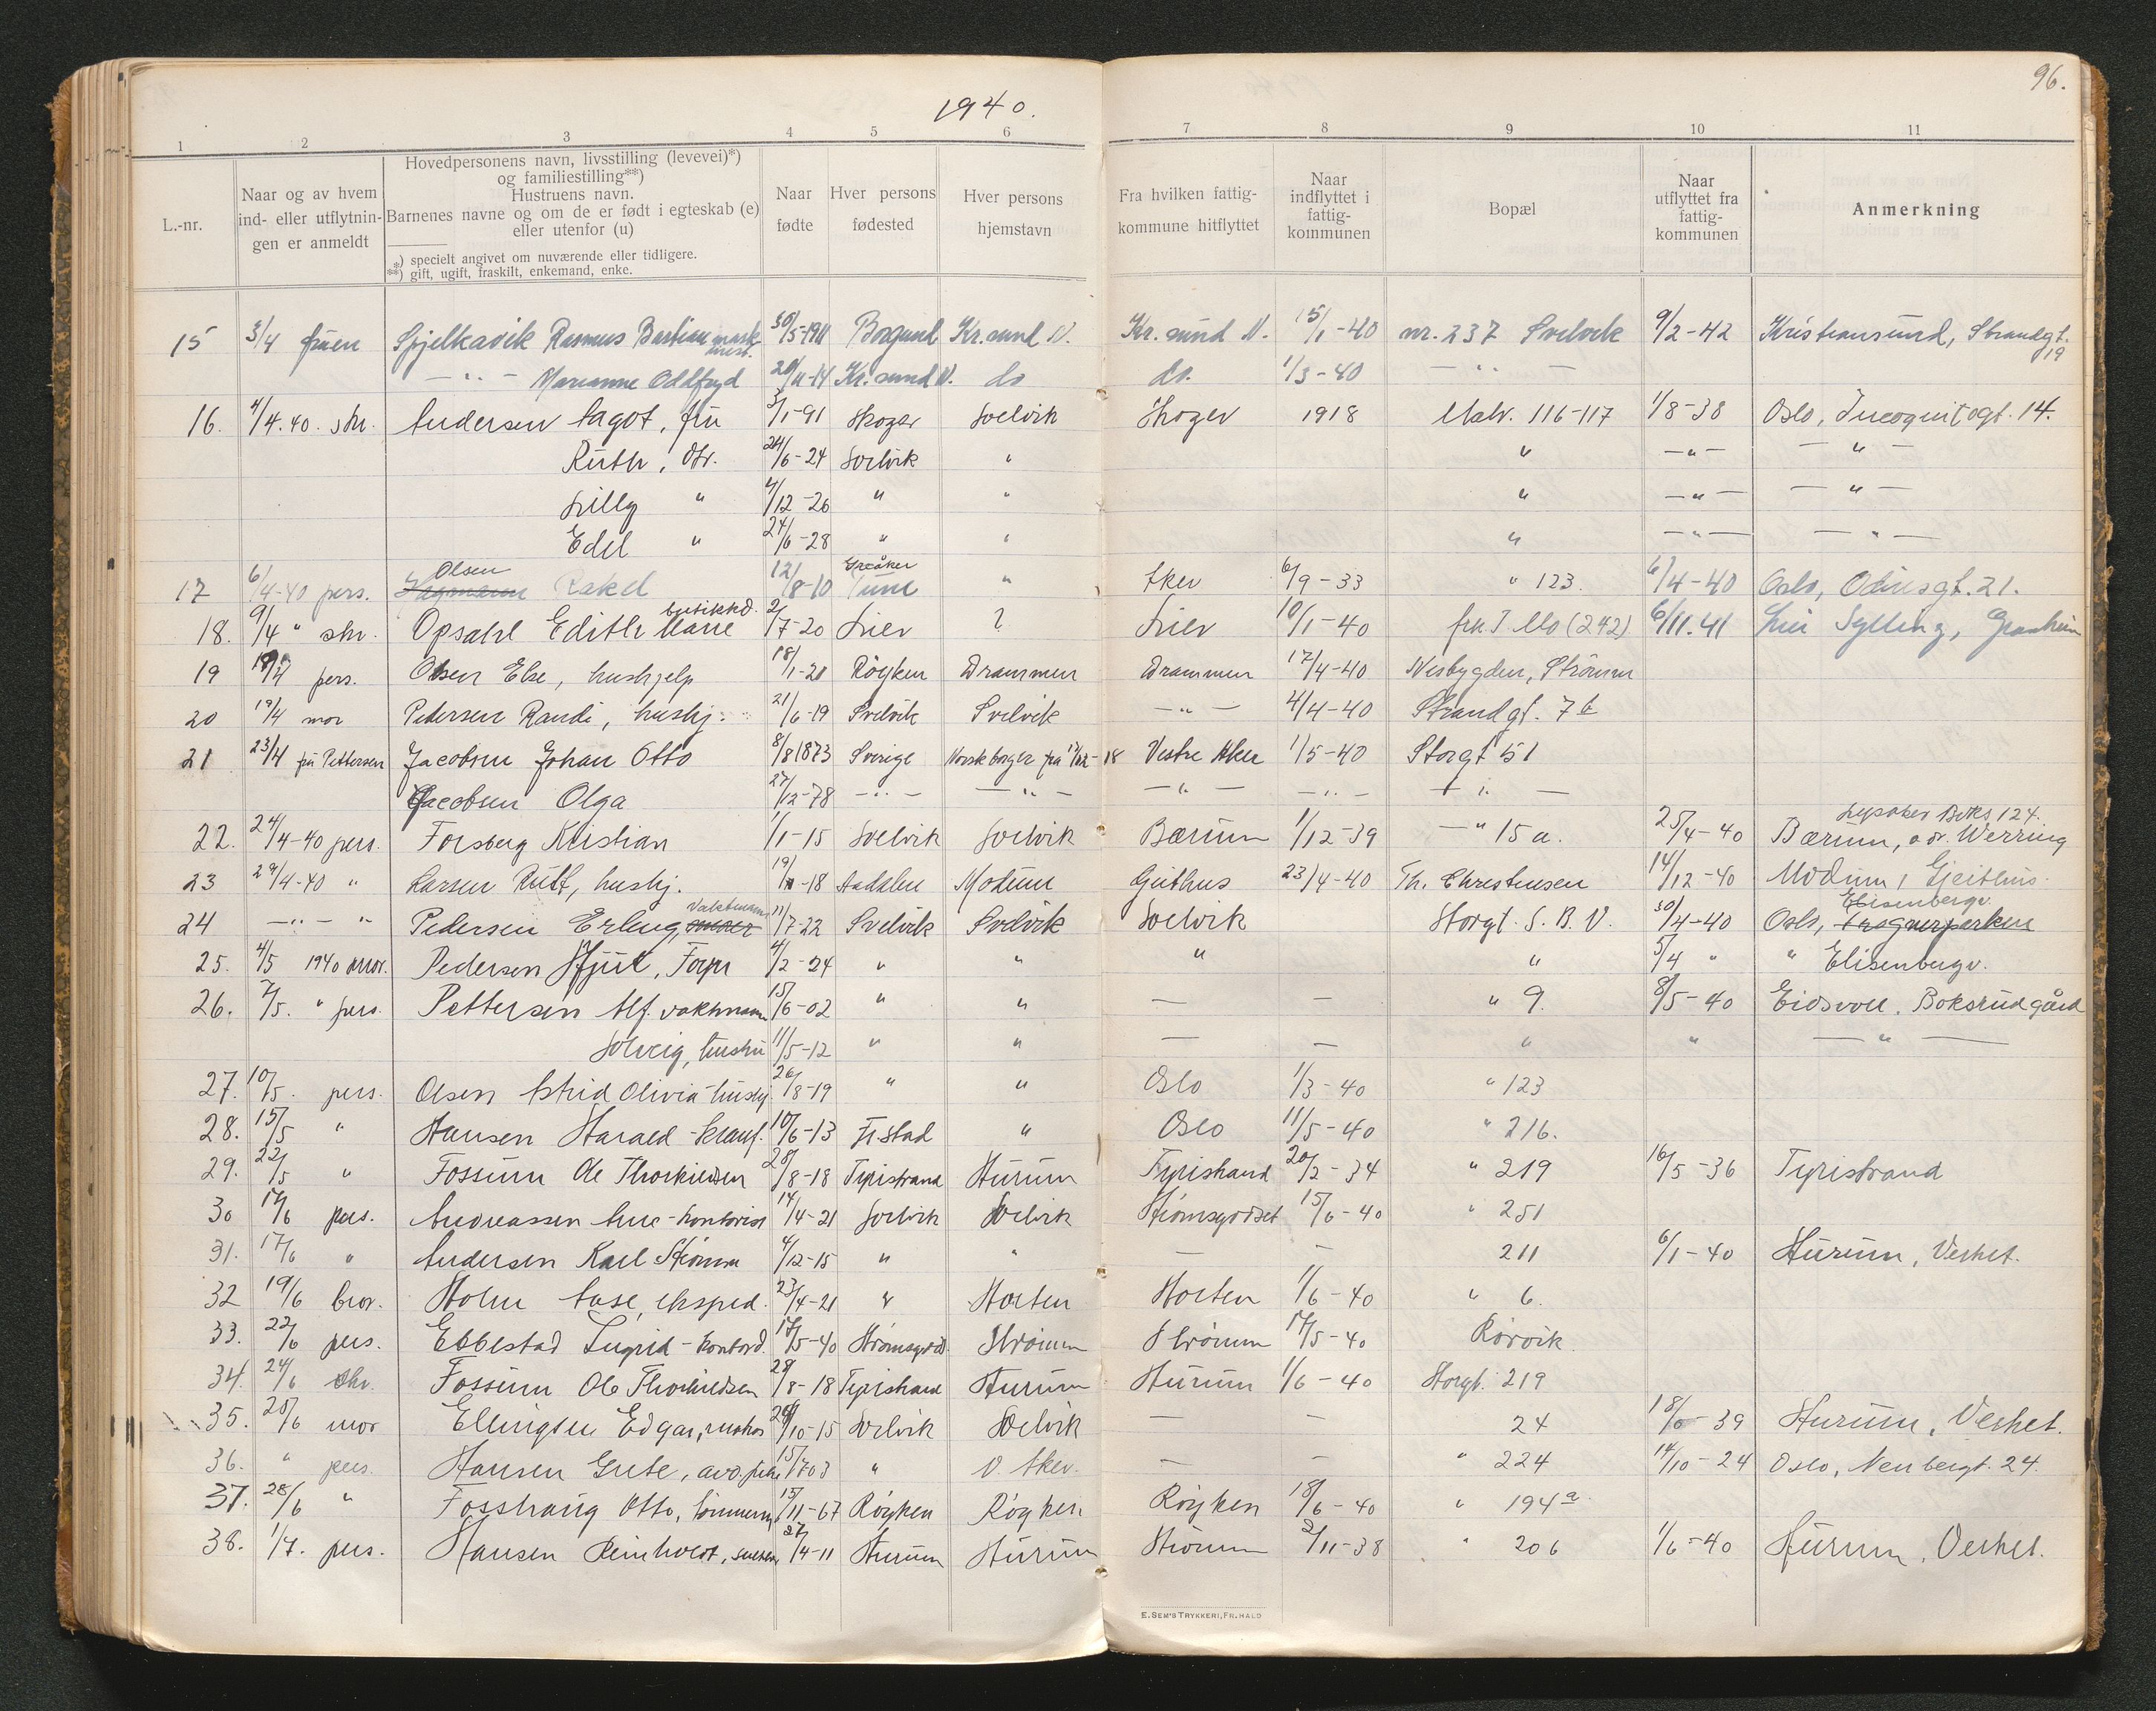 1940.
96.
1 2 3 4 5 6 7 8 9 10 11
L.-nr.
Naar og av hvem ind- eller utflytnin- gen er anmeldt
Hovedpersonens navn, livsstilling (levevei)*)
og familiestilling**)
Hustruens navn.
Barnenes navne og om de er født i egteskab (e)
eller utenfor (u)
*) specielt angivet om nuværende eller tidligere.
**) gift, ugift, fraskilt, enkemand, enke.
Naar fødte
Hver persons fødested
Hver persons hjemstavn
Fra hvilken fattig- kommune hitflyttet
Naar indflyttet i fattig- kommunen
Bopæl
Naar utflyttet fra fattig- kommunen
Anmerkning
15 3/4 fruen Spjelkavik Rasmus Bastian mask. mest. 30/5-1911 Borgund Kr.sund N. Kr.sund N. 15/1-40 nr. 237 Svelvik 9/2-42 Kristiansund, Strandgt. 19
— " — Marianne Oddfryd 20/11-14 Kr.sund N. do do. 1/3-40 — " —
16. 4/4.40. skr. Andersen Aagot, fru 3/1-91 Skoger Svelvik Skoger 1918 Malv. 116-117 1/8-38 Oslo, Incognitogt. 14.
Ruth, dtr. 24/6-24 Svelvik " " — " — — " —
Lilly " 4/12-26 " " " — " — — " —
Edel " 24/6-28 " " " — " — — " —
17 6/4-40 pers. Olsen Rakel 12/8-10 Greåker Tune " Aker 6/9-33 " 123. 6/4-40 Oslo, Odinsgt. 21.
18. 9/4 " skr. Opsahl Edith Marie butikkd. 2/7-20 Lier ? Lier 10/1-40 frk I. Mo (242) 6/11.41 Lier Sylling, Granheim
19 18/4 pers. Olsen Else, hushjelp 18/1-20 Røyken Drammen Drammen 17/4-40 Nesbygden, Strømm
20 19/4 mor Pedersen Randi, hushj. 21/6-19 Svelvik Svelvik — " — 4/4-40 Strandgt. 7b
21 23/4 fru Pettersen Jacobsen Johan Otto 8/8 1873 Sverige Norsk borger fra 17/12-18 Vestre Aker 1/5-40 Storgt 51
Jacobsen Olga 27/12-78 — " — — " — — " — — " — — " —
22. 24/4-40 pers. Forsberg Kristian 1/1-15 Svelvik Svelvik Bærum 1/12-39 — " 15 a. 25/4-40 Lysaker Boks 124. Bærum, o.r. Werring
23 29/4-40 " Larsen Rutt, hushj. 19/11-18 Aadalen Modum Geithus 23/4-40 Th. Christensen 14/12-40 Modum, Gjeithus
24 — " — " Pedersen Erling, Vaktmann 11/7-22 Svelvik Svelvik Svelvik Storgt. S. B. V. 30/4-40 Oslo, Frognerparken Elisenbergv.
25. 4/5 1940 mor. Pedersen Hjut, Forpr 4/2-24 " " " " 5/4 " " Elisenbergv.
26. 7/5. " pers. Pettersen Alf. vaktmann 15/6-02 " " — — " 9. 8/5-40 Eidsvoll. Boksrud gård
Solveig, hustru 11/5-12 " " — — " " — " —
27. 10/5. pers. Olsen Astrid Olivia - hushj. 26/8-19 " " Oslo 1/3-40 " 123
28. 15/5 " Hansen Harald - 10/6-13 Fr.stad " Oslo 11/5-40 " 216.
29. 22/5 " Fossum Ole Thorkildsen 28/8-18 Tyristrand Hurum Tyristrand 20/2-34 " 219 16/5-36 Tyristrand
30 17/6 pers. Andreassen Arne - kontorist 14/4-21 Svelvik Svelvik Strømsgodset 15/6-40 " 251
31. 17/6 " Andersen Karl Strømm 4/12-15 " " — — 211 6/1-40 Hurum, Verket.
32 19/6 bror. Holm Aase, eksped. 23/4-21 " Horten Horten 1/6-40 " 6.
33. 22/6 pers. Ebbestad Ingrid - kontord. 17/5-40 Strømsgods Strømm Strømm 17/5-40 Rørvik
34. 24/6 skr. Fossum Ole Thorkildsen 28/8-18 Tyristrand Hurum Hurum 1/6-40 Storgt. 219
35. 25/6 mor Ellingsen Edgar, 24/10-15 Svelvik Svelvik — — 24 18/6-39 Hurum, Verket.
36. " pers. Hansen Grete, 15/1703 " V. Aker. — — " 224 14/10-24 Oslo, Neubergt. 24.
37. 28/6 " Fosshaug Otto, tømmerm. 15/11-67 Røyken Røyken Røyken 18/6-40 " 194a
38. 1/7. pers. Hansen Reinholdt, 27/4-11 Hurum Hurum Strømm 2/11-38 " 206 1/6-40 Hurum, Verket.
E. SEM'S TRYKKERI, FR.HALD